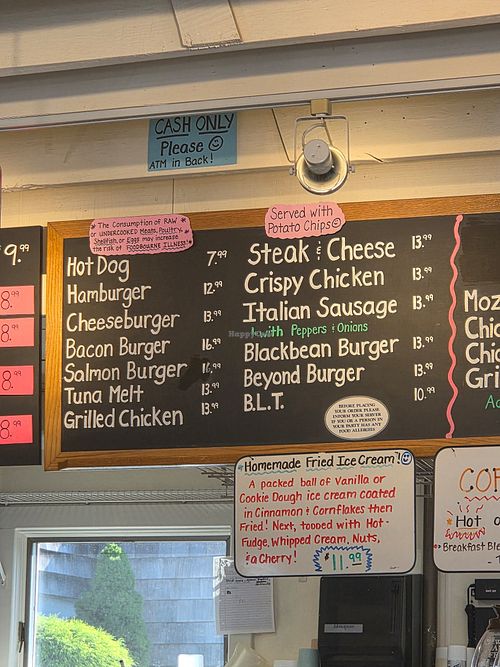 CASH ONLY
Please
ATM in Back!
* The Consumption of RAW
or UNDERCOOKED Meats, Poultry,
Shellfish, or Eggs may increase
the risk of FOODBOURNE ILLNESS! *
Served with
Potato Chips
9.99
8.99
8.99
8.99
8.99
Hot Dog 7.99
Hamburger 12.99
Cheeseburger 13.99
Bacon Burger 16.99
Salmon Burger
Tuna Melt 13.99
Grilled Chicken 13.99
Steak & Cheese 13.99
Crispy Chicken 13.99
Italian Sausage 13.99
with Peppers & Onions
Blackbean Burger 13.99
Beyond Burger 13.99
B.L.T. 10.99
BEFORE PLACING
YOUR ORDER PLEASE
INFORM YOUR SERVER
IF YOU OR A PERSON IN
YOUR PARTY HAS ANY
FOOD ALLERGIES
Moz
Chic
Chic
Gri
*Homemade Fried Ice Cream!
A packed ball of Vanilla or
Cookie Dough ice cream coated
in Cinnamon & Cornflakes then
Fried! Next, topped with Hot-
Fudge, Whipped Cream, Nuts,
& a Cherry! $11.99
COF
*Hot
Breakfast Ble
HappyCow